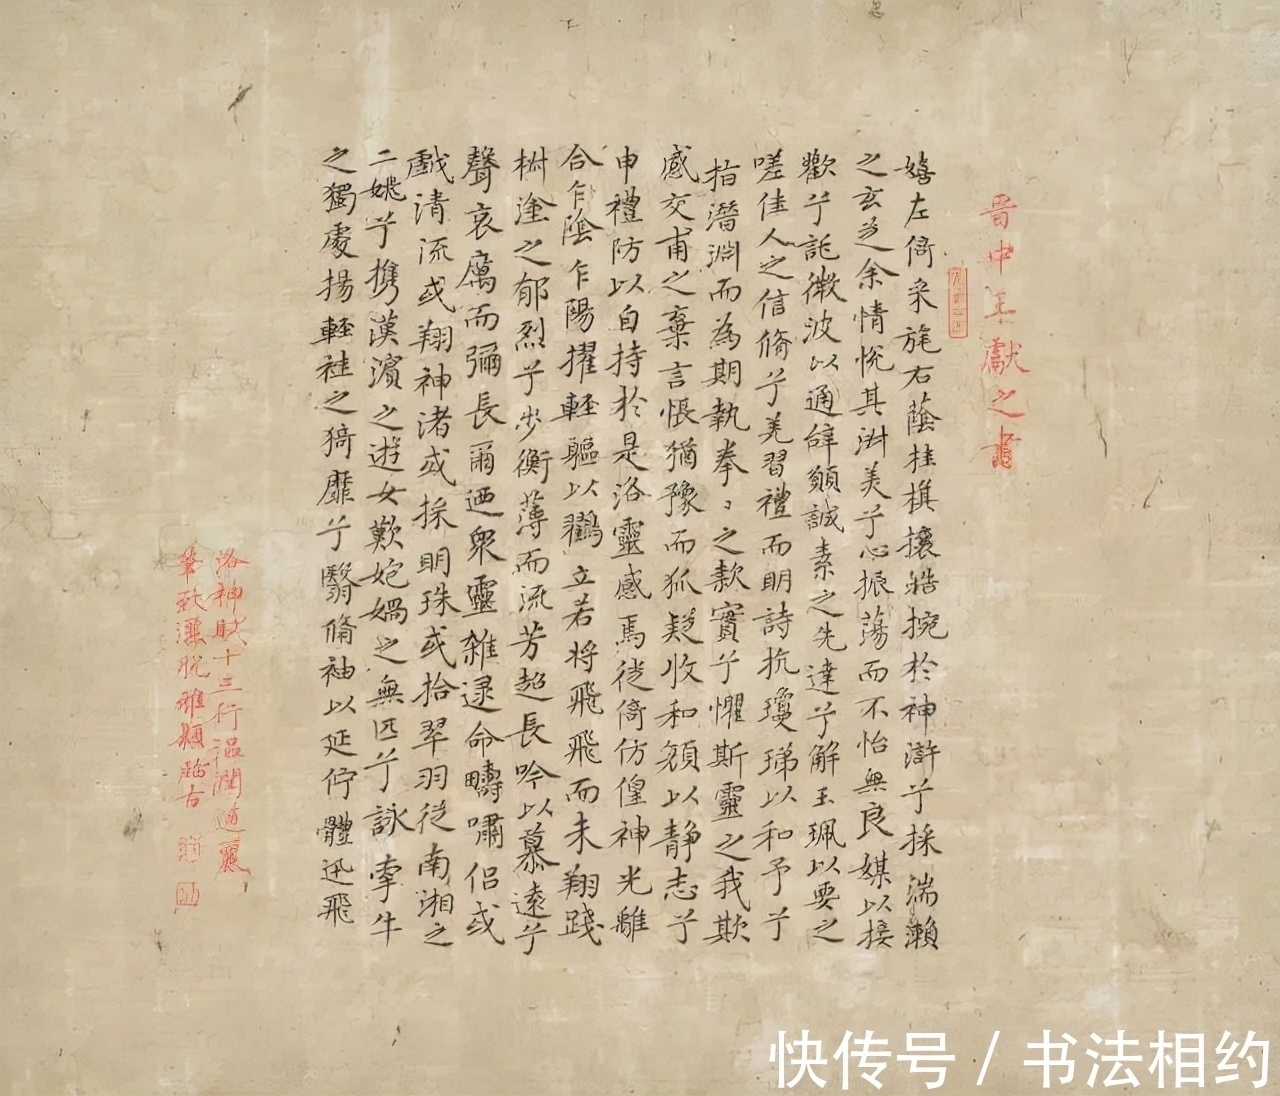 晉中王獻之書
嬉左倚采旄右蔭桂旗攘皓捥於神滸兮採湍瀨
之玄芝余情悅其淑美兮心振蕩而不怡無良媒以接
歡兮託微波以通辝願誠素之先達兮解玉珮以要之
嗟佳人之信脩兮羌習禮而明詩抗瓊珶以和予兮
指潛淵而為期執拳〻之款實兮懼斯靈之我欺
感交甫之棄言悵猶豫而狐疑收和顏以静志兮
申禮防以自持於是洛靈感焉徙倚仿偟神光離
合乍陰乍陽擢輕軀以鶴立若将飛而未翔踐
椒塗之郁烈兮步衡薄而流芳超長吟以慕遠兮
聲哀厲而彌長爾迺眾靈雜遝命疇嘯侣或
戲清流或翔神渚或採明珠或拾翠羽從南湘之
二姚兮攜漢濱之遊女歎匏媧之無匹兮詠牽牛
之獨處揚輕袿之猗靡兮翳脩袖以延佇體迅飛
洛神賦十三行溫潤遒麗
快传号 / 书法相约